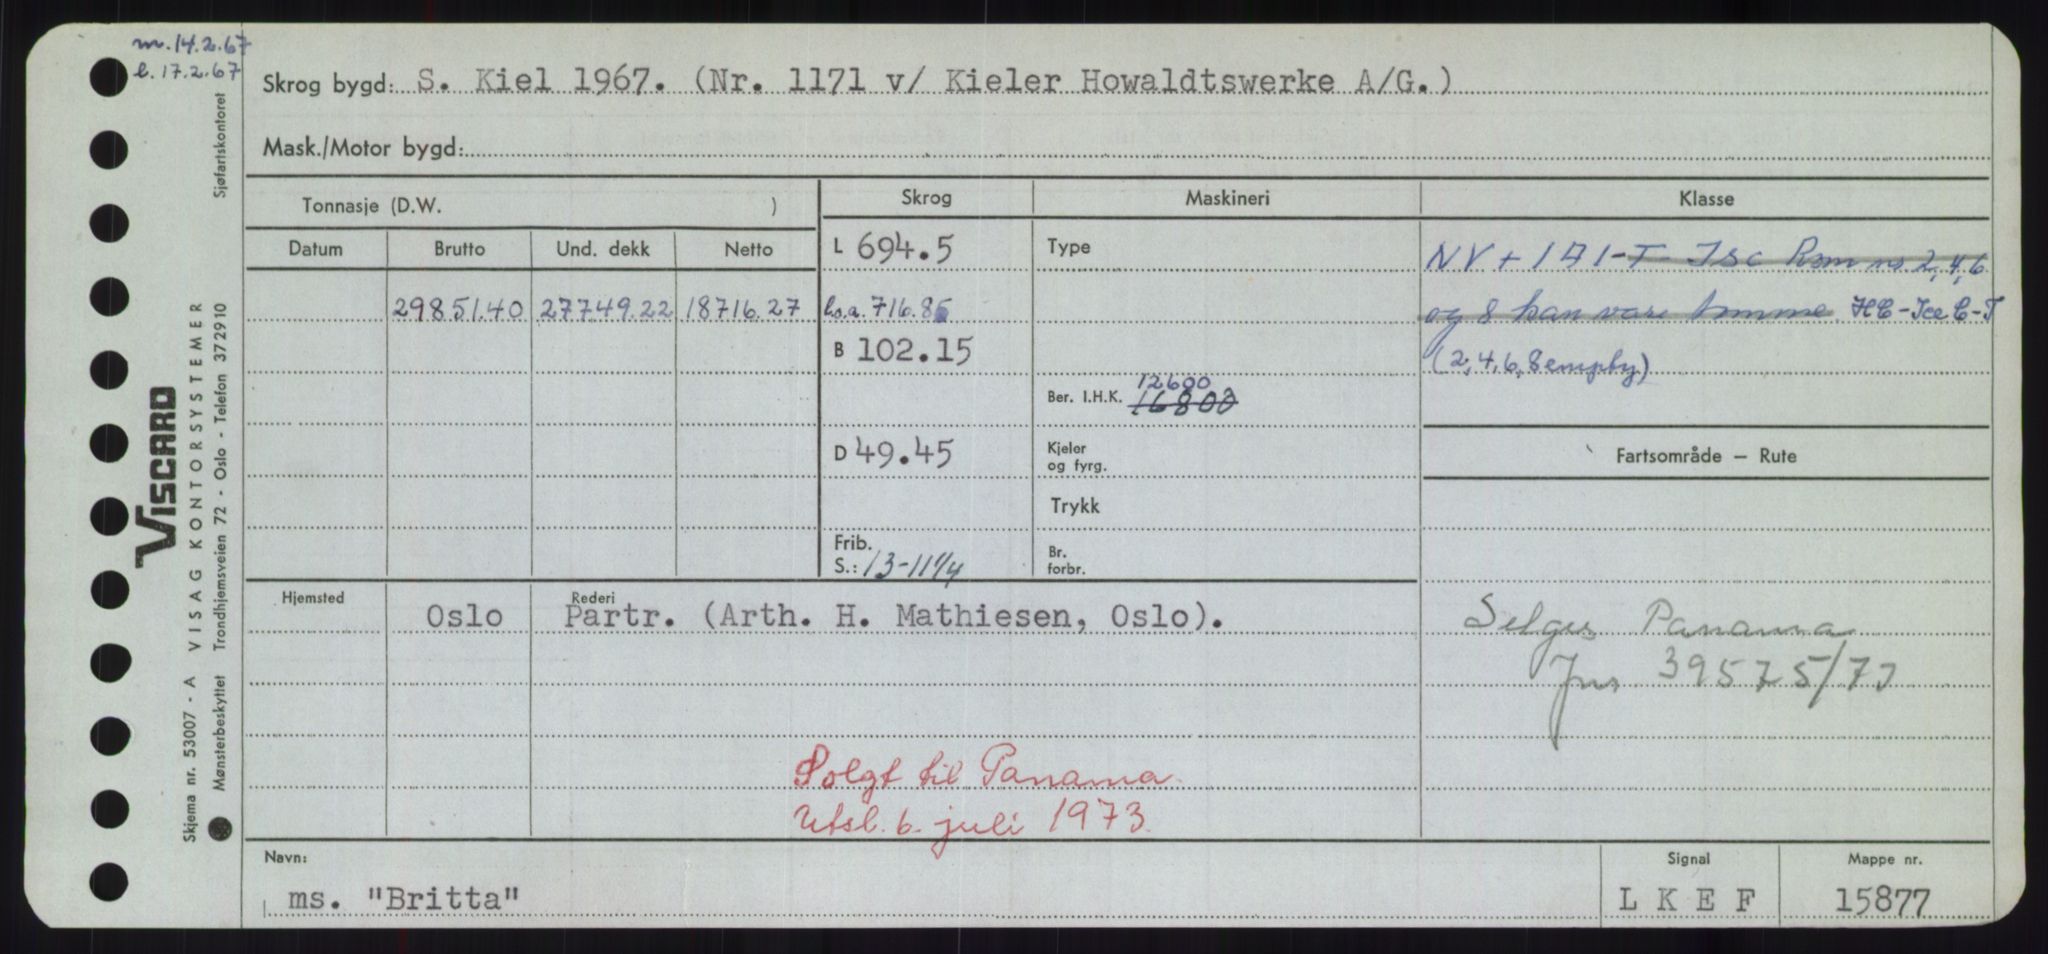 m. 14.2.67
l. 17.2.67
Skrog bygd: S. Kiel 1967. (Nr. 1171 v/ Kieler Howaldtswerke A/G.)
Mask./Motor bygd:
Tonnasje (D.W. )
Skrog
Maskineri
Klasse
Datum
Brutto
Und. dekk
Netto
L 694.5
Type
NV + 1A1 - T - Isc Rom no. 2, 4, 6
29851.40
27749.22
18716.27
l.o.a. 716.86
og 8 kan være tomme. HC - Ice C - T
B 102.15
(2, 4, 6, 8 empty)
12600
Ber. I.H.K. 16800
D 49.45
Kjeler
og fyrg.
Fartsområde – Rute
Trykk
Frib.
S.: 13-11 1/4
Br.
forbr.
Hjemsted
Rederi
Oslo
Partr. (Arth. H. Mathiesen, Oslo).
Selges Panama
Jnr 39575/73
Solgt til Panama
Utsl. 6. juli 1973
Navn:
Signal
Mappe nr.
ms. "Britta"
LKEF
15877
VISCARD
Skjema nr. 53007 - A VISAG KONTORSYSTEMER
Mønsterbeskyttet Trondhjemsveien 72 - Oslo - Telefon 372910 Sjøfartskontoret